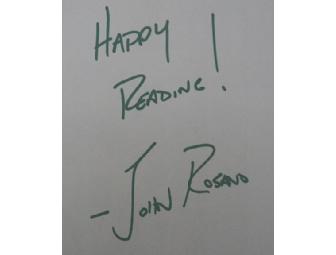 HAPPY
READING!
- JOHN ROSAND